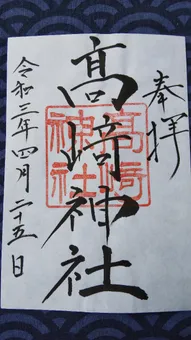 奉拝
高崎神社
高崎神社
令和三年四月二十五日